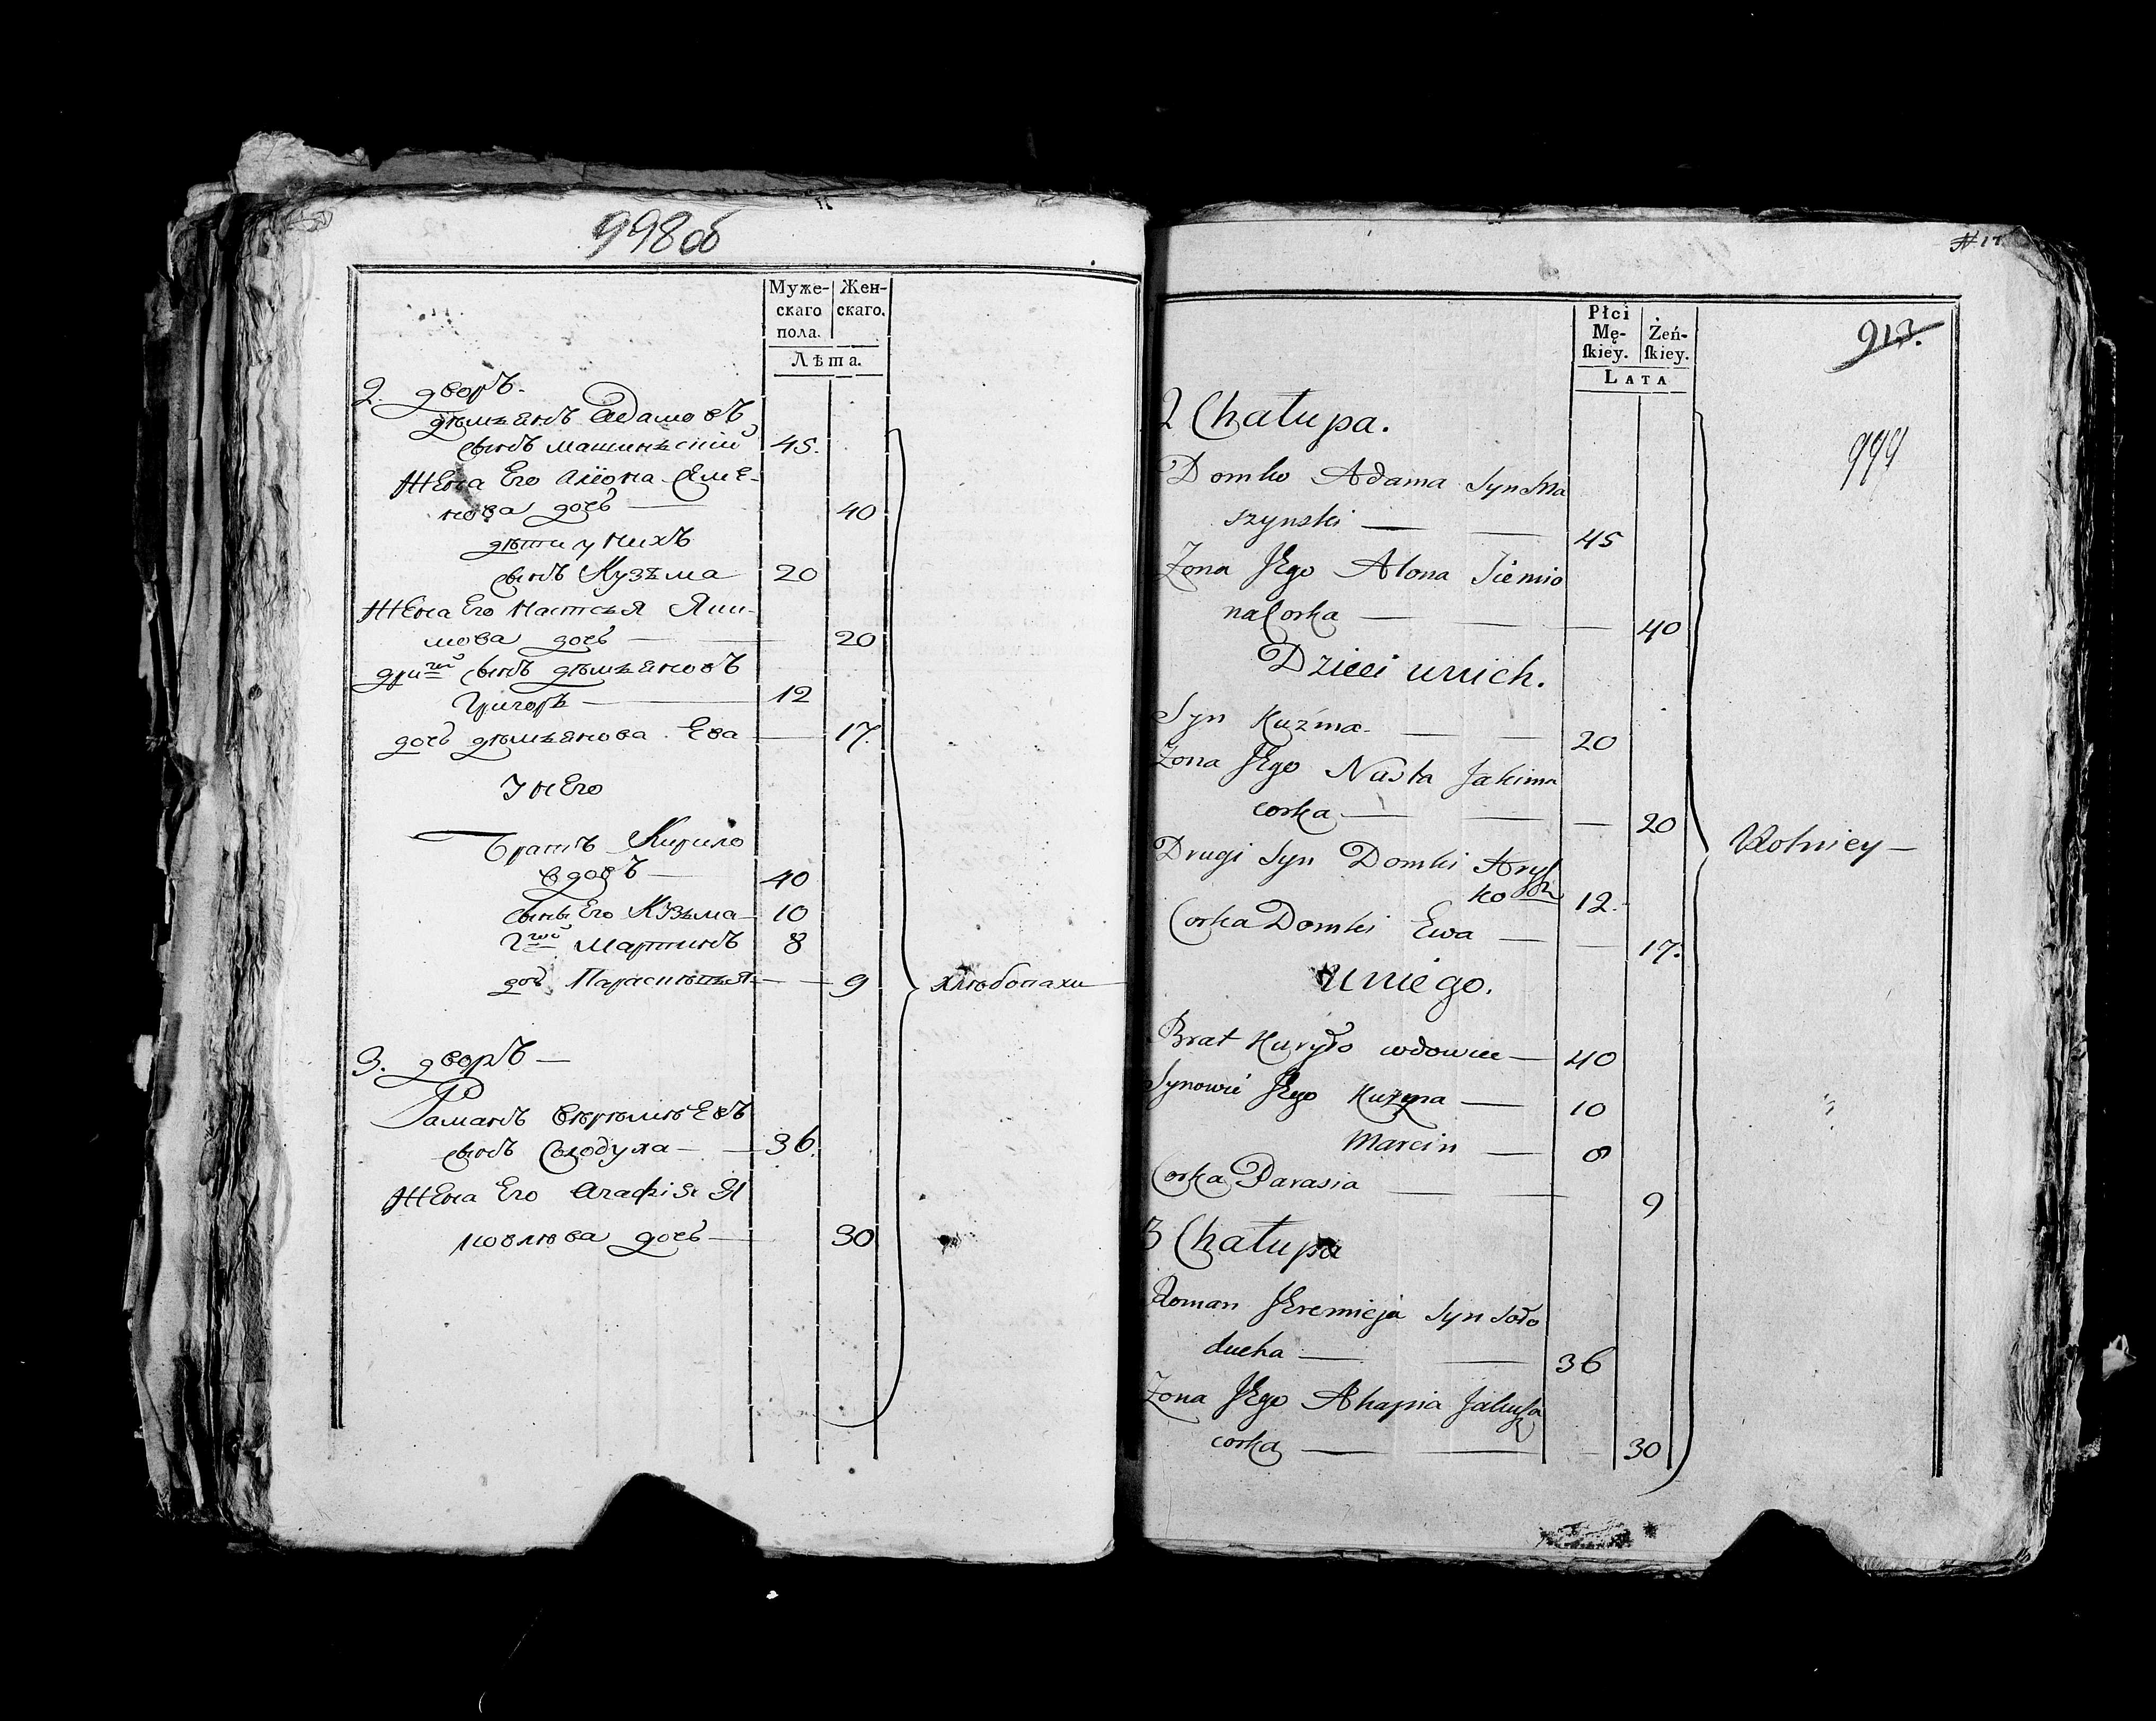 998об
Муже-
скаго
пола.
Жен-
скаго.
Лѣта.
2. дворъ.
Дѣмьянъ Адамовъ
сынъ Машинскій 45.
Жена Его Алюона Яме-
нова дочь — 40
дѣти у нихъ
сынъ Кузьма 20
Жена Его Настсья Яки-
мова дочь — 20
дру гой сынъ дѣмьяновъ
Григоръ — 12
дочь дѣмьянова Ева — 17.
У нЕго
Братъ Кирило
вдовъ — 40
сынъ Его Кузьма — 10
2гой Мартинъ 8
дочь Параскѣвья — 9
Хлѣбопахи —
3. дворъ —
Раманъ
сынъ Солодуха — 36.
Жена Его Агафія Я
ковлѣва дочь — 30
N 17
Płci
Mę-
ſkiey.
Żeń-
ſkiey.
LATA
913.
999
2 Chałupa.
Domko Adama Syn Ma
szynski — — 45
Zona JEgo Alona Siemio
na Corka — — — 40
Dzieci unich.
Syn Kuźma — — 20
Zona JEgo Nasta Jakima
corka — — — 20
Drugi Syn Domki Hryh
ko 12.
Corka Domki Ewa — — 17.
Uniego.
Brat Kuryło wdowiec — 40
Synowie JEgo Kuźma — 10
Marcin — 8
Corka Parasia — — 9
Rolniey —
3 Chałupa
Roman JEremieja Syn Soło
ducha — — 36
Zona JEgo Ahapia Jakuba
corka — — — 30